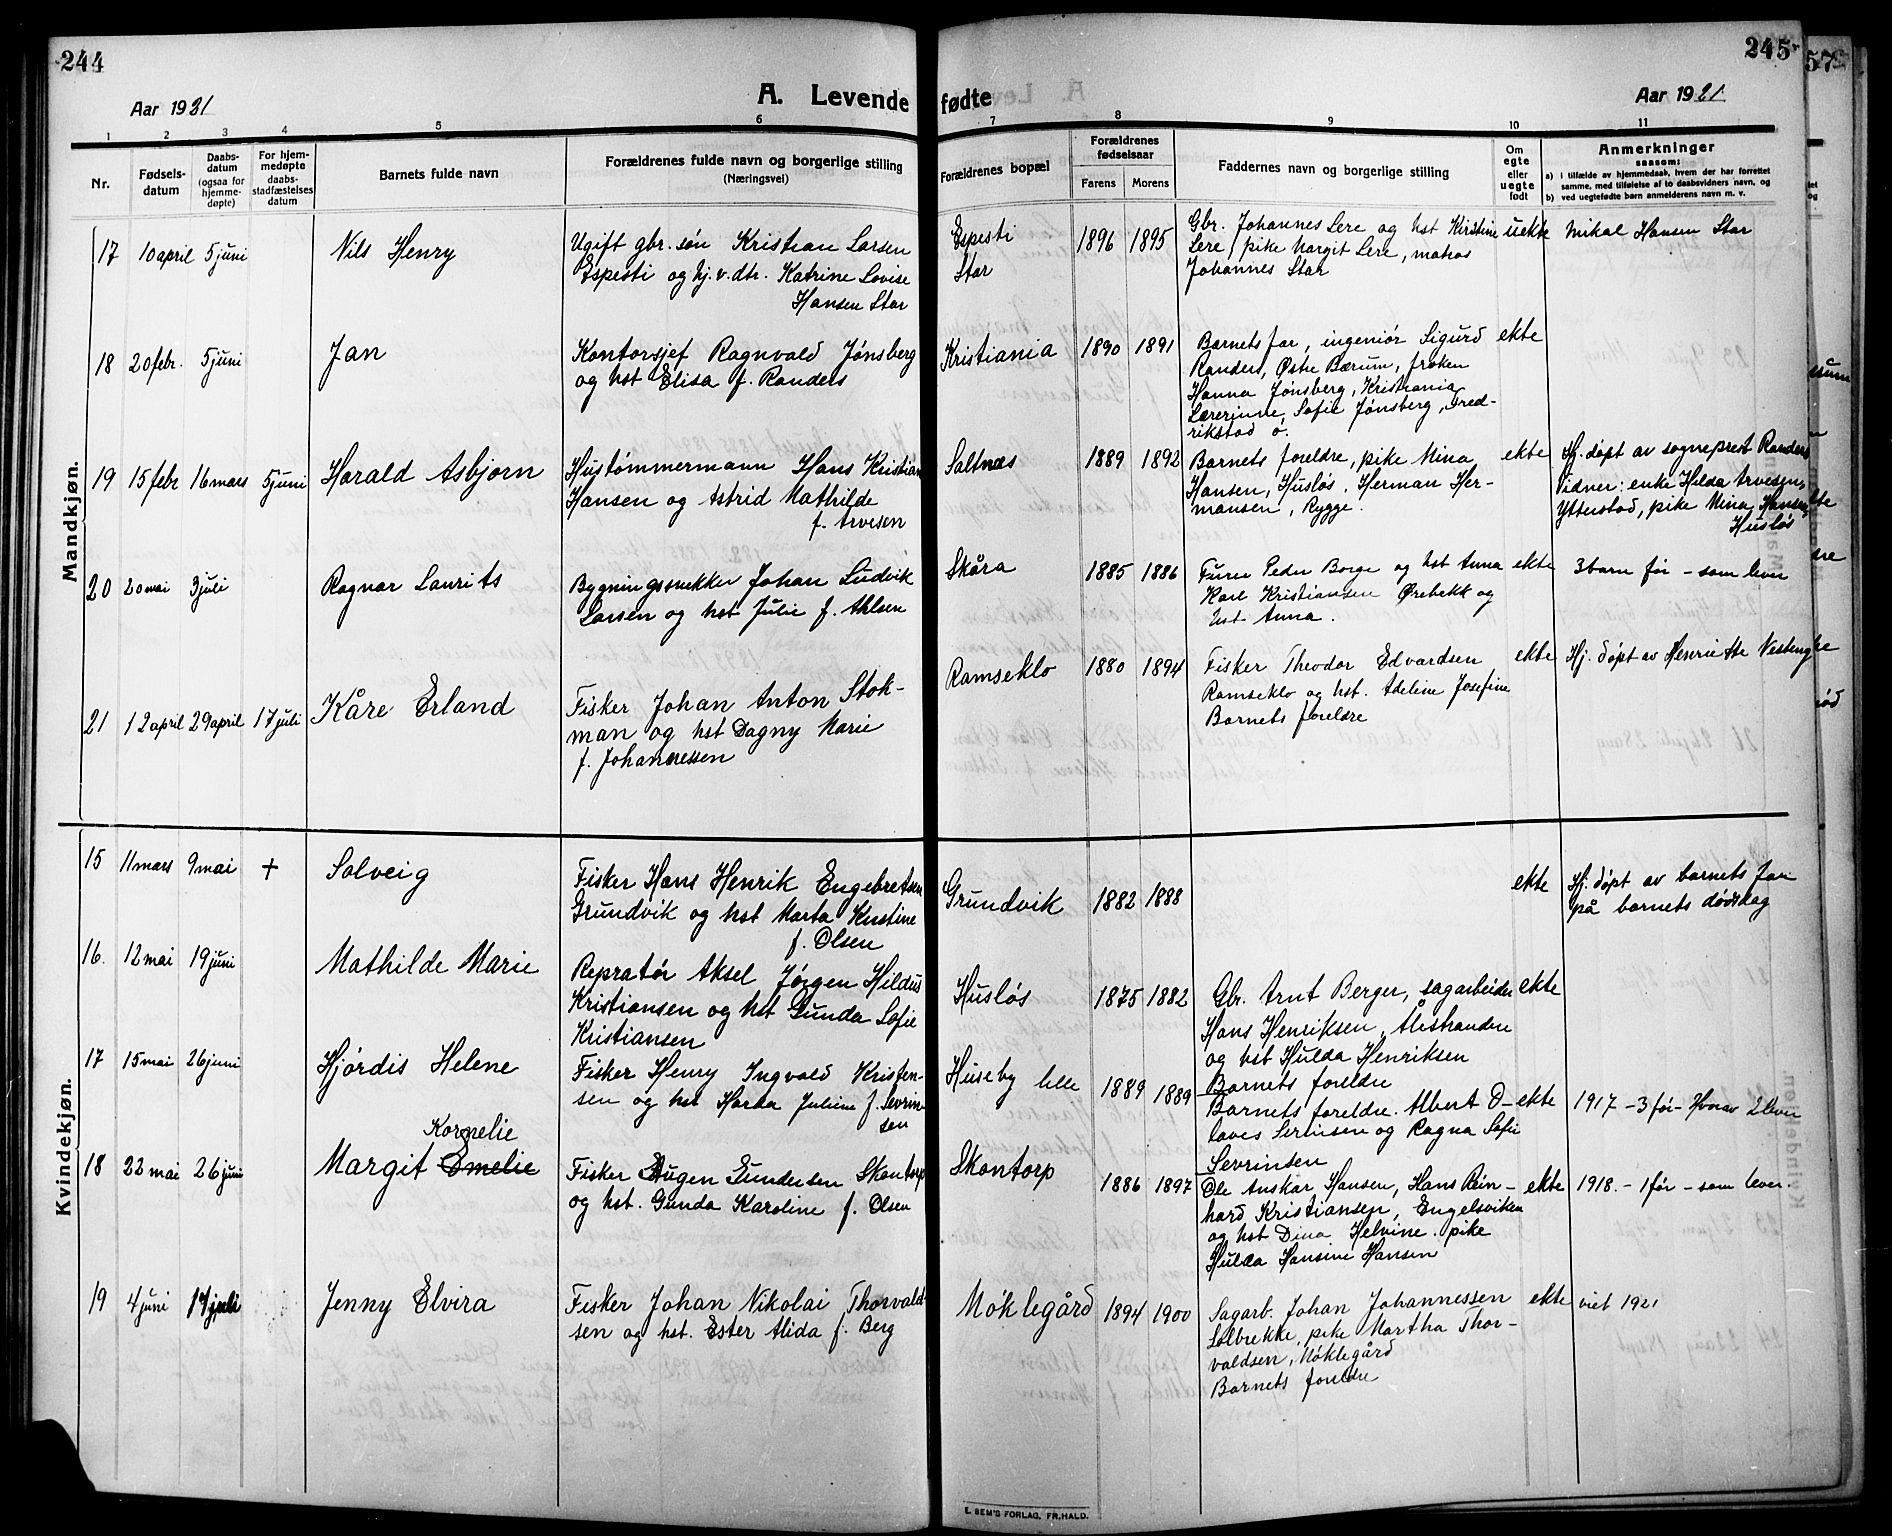 244
245
57
Aar 1921
A. Levende fødte
Aar 1921
1 2 3 4 5 6 7 8 9 10 11
Nr.
Fødsels-
datum
Daabs-
datum
(ogsaa for
hjemme-
døpte)
For hjem-
medøpte
daabs-
stadfæstelses
datum
Barnets fulde navn
Forældrenes fulde navn og borgerlige stilling
(Næringsvei)
Forældrenes bopæl
Forældrenes
fødselsaar
Farens Morens
Faddernes navn og borgerlige stilling
Om
egte
eller
uegte
født
Anmerkninger
saasom:
a) i tilfælde av hjemmedaab, hvem der har forrettet
samme, med tilføielse af to daabsvidners navn, og
b) ved uegtefødte børn anmelderens navn m. v.
Mandkjøn.
17 10 april 5 juni Nils Henry
Ugift gbr. søn Kristian Larsen
Espesti og hj. v. dtr. Katrine Lovise
Hansen Star
Espesti
Star
1896 1895
Gbr. Johannes Lere og hst Kirstine
Lere, pike Margit Lere, matros
Johannes Star
uekte
Mikal Hansen Star
18 20 febr. 5 juni Jan
Kontorsjef Ragnvald Jønsberg
og hst Elisa f. Randers
Kristiania
1890 1891
Barnets far, ingeniør Sigurd
Randers, Østre Bærum, frøken
Hanna Jønsberg, Kristiania
Lærerinne, Sofie Jønsberg, Fred-
rikstad ø.
ekte
19 15 febr 16 mars 5 juni Harald Asbjørn
Hustømmermann Hans Kristian
Hansen og Astrid Mathilde
f. Arvesen
Saltnæs
1889 1892
Barnets foreldre, pike Mina
Hansen, Husløs, Herman Her-
mansen, Rygge.
ekte
Hj. døpt av sogneprest Randers
Vidner: enke Hilda Arvesen,
Ytterstad, pike Mina Hansen,
Husløs
20 20 mai 3 juli Ragnar Laurits
Bygningssnekker Johan Ludvik
Larsen og hst Julie f. Ahlsen
Skåra
1885 1886
Furer Peder Borge og hst Anna
Karl Kristiansen Ørebekk og
hst Anna.
ekte
3 barn før - som lever
21 12 april 29 april 17 juli Kåre Erland
Fisker Johan Anton Stok-
man og hst Dagny Marie
f. Johannessen
Ramseklo
1880 1894
Fisker Theodor Edvardsen
Ramseklo og hst. Adeline Josefine
Barnets foreldre
ekte
Hj. døpt av Henriette Vesteng
Kvindekjøn.
15 11 mars 9 mai + Solveig
Fisker Hans Henrik Engebretsen
Grundvik og hst Marta Kirstine
f. Olsen
Grundvik
1882 1888
ekte
Hj. døpt av barnets far
på barnets dødsdag
16. 12 mai 19 juni Mathilde Marie
Repratør Aksel Jørgen Hildus
Kristiansen og hst Gunda Sofie
Kristiansen
Husløs
1875 1882
Gbr. Arnt Berger, sagarbeider
Hans Henriksen, Ålestranden
og hst Hulda Henriksen
Barnets foreldre
ekte
17 15 mai 26 juni Hjørdis Helene
Fisker Henry Ingvald Kristen-
sen og hst Marta Juliene f. Sevrin
sen
Huseby lille
1889 1889
Barnets foreldre. Albert O-
laves Sevrinsen og Ragna Sofie
Sevrinsen
ekte
1917 - 3 før - Hvorav 2 lever
Kornelie
18 22 mai 26 juni Margit Emelie
Fisker Eugen Gundersen Skontorp
og hst. Gunda Karoline f. Olsen
Skontorp
1886 1897
Ole Anskar Hansen, Hans Rein-
hard Kristiansen, Engelsviken
og hst Dina Helvine. pike
Hulda Hansine Hansen
ekte
1918. - 1 før - som lever.
19 4 juni 17 juli Jenny Elvira
Fisker Johan Nikolai Thorvald
sen og hst. Ester Alida f. Berg
Møklegård
1894 1900
Sagarb. Johan Johannessen
Solbrekke, pike Martha Thor-
valdsen, Møklegård
Barnets foreldre
ekte
viet 1921
E. SEM'S FORLAG, FR.HALD.